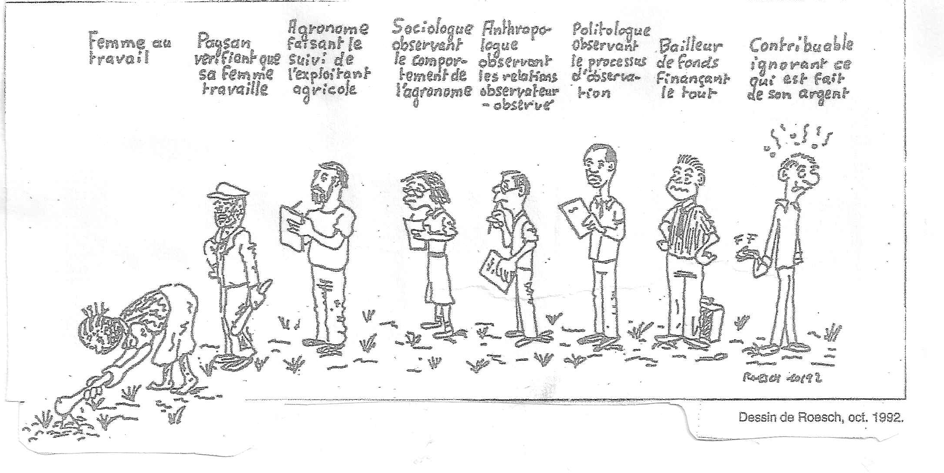 Femme au
travail
Paysan
vérifiant que
sa femme
travaille
Agronome
faisant le
suivi de
l'exploitant
agricole
Sociologue
observant
le compor-
tement de
l'agronome
Anthropo-
logue
observant
les relations
observateur
- observé
Politologue
observant
le processus
d'observa-
tion
Bailleur
de fonds
finançant
le tout
Contribuable
ignorant ce
qui est fait
de son argent
FF
ROESCH 10/92
Dessin de Roesch, oct. 1992.